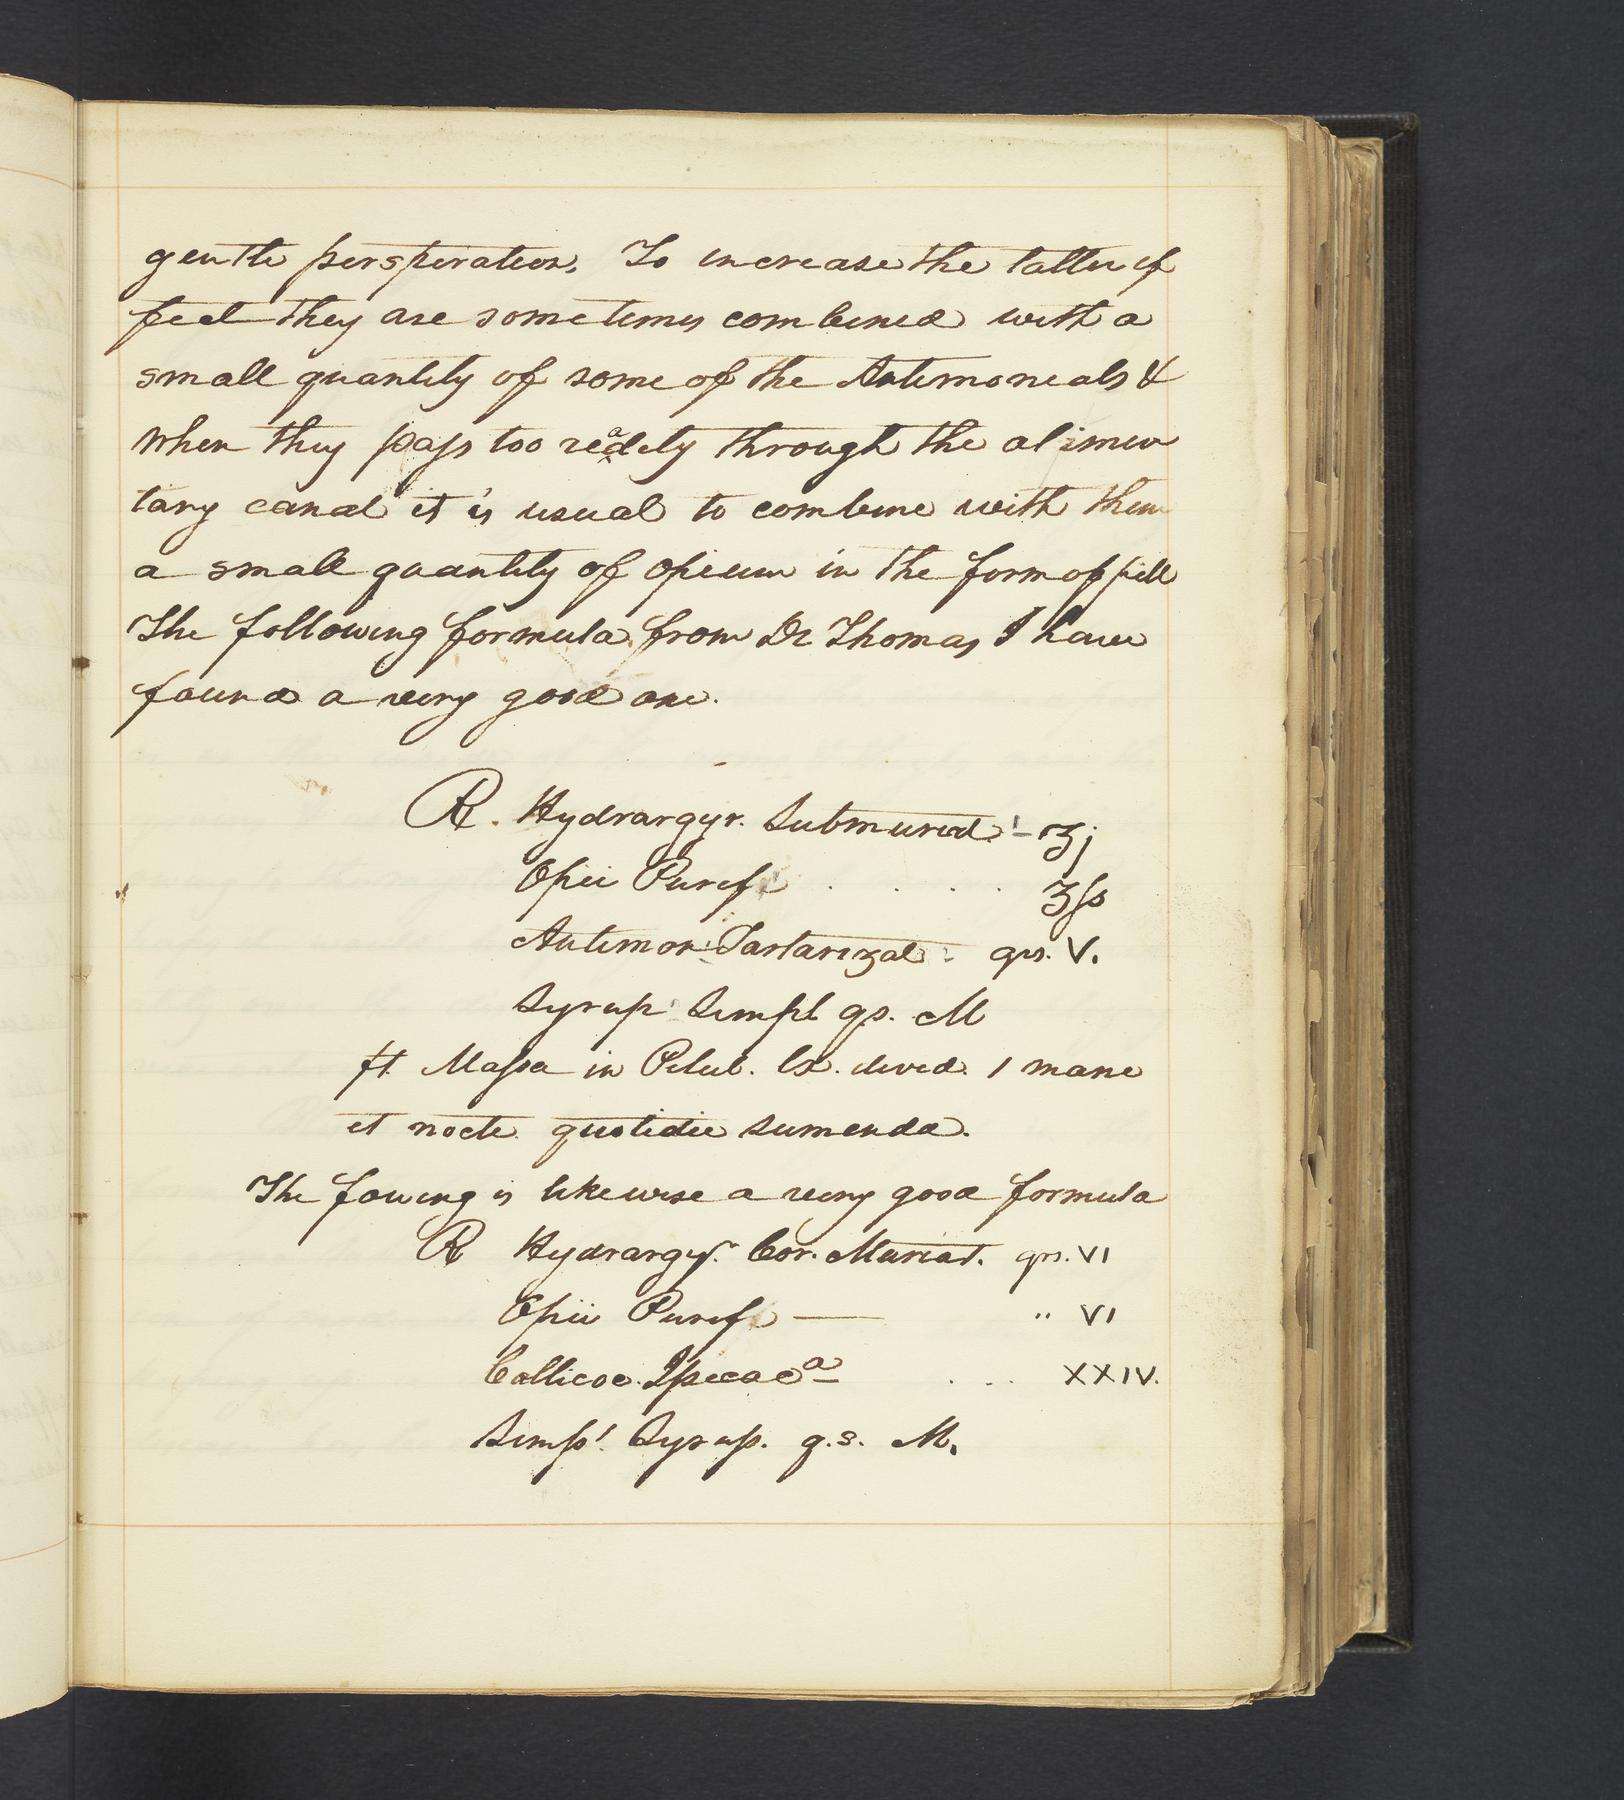 gentle perspiration. To increase the latter ef
fect they are sometimes combined with a
small quantity of some of the Antimoneals &
when they pass too readely through the alimen
tary canal it is usual to combine with them
a small quantity of opium in the form of pill
The following formula from Dr Thomas I have
found a very good one.
℞. Hydrargyr. Submuriat. - ʒj
Opii Purif . . . . ʒſs
Antimon: Tartarizat: grs. V.
Syrup Simpl qs. M
ft. Massa in Pilul. lx. divid. 1 mane
et nocte quotidie sumenda.
The fowing is likewise a very good formula
℞ Hydrargyr. Cor. Muriat. grs. VI
Opii Purif — " VI
Callicoe. Ipecac a . . . XXIV.
Simpl. Syrup. q.s. M.